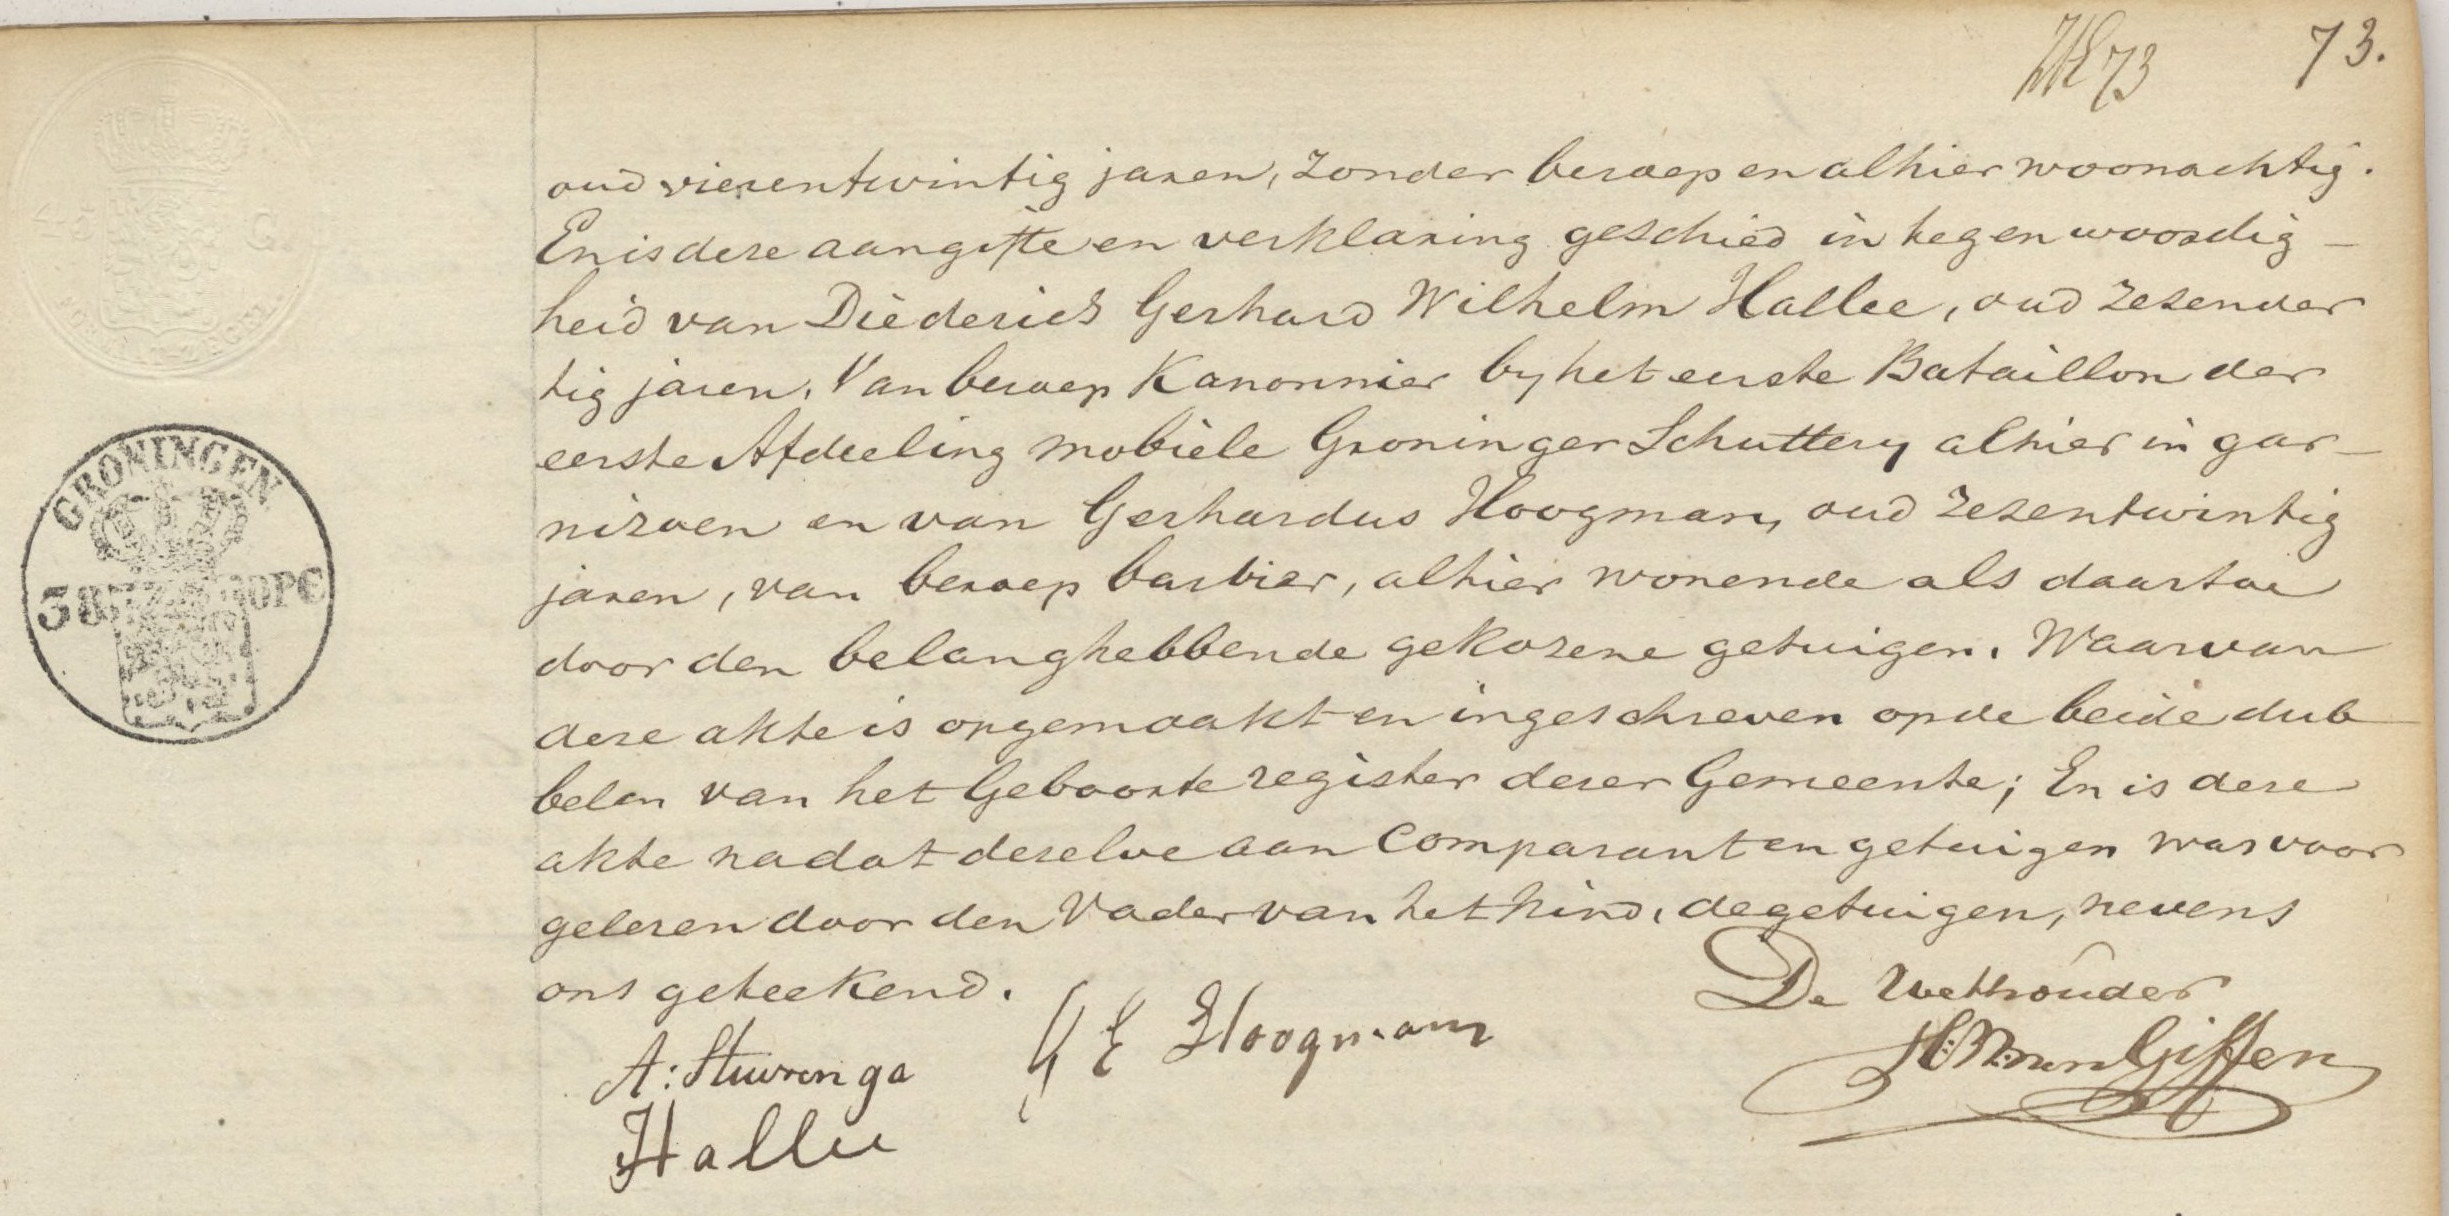 73
73.
oud vierentwintig jaren, zonder beroep en alhier woonachtig.
En is deze aangifte en verklaring geschied in tegenwoordig-
heid van Diederich Gerhard Wilhelm Hallee, oud zesenveer
tig jaren, Van beroep Kanonnier by het eerste Bataillon der
eerste Afdeeling mobiele Groninger Schuttery alhier in gar-
nizoen en van Gerhardus Hoogman, oud zesentwintig
jaren, van beroep barbier, alhier wonende als daartoe
door den belanghebbende gekozene getuigen. Waarvan
deze akte is opgemaakt en ingeschreven op de beide dub
belen van het Geboorte register dezer Gemeente; En is deze
akte nadat dezelve aan Comparant en getuigen was voor
gelezen door den Vader van het kind, de getuigen, nevens
ons geteekend.
De Wethouder
A: Stuivenga
G E Hoogman
van Giffen
Hallee
GRONINGEN